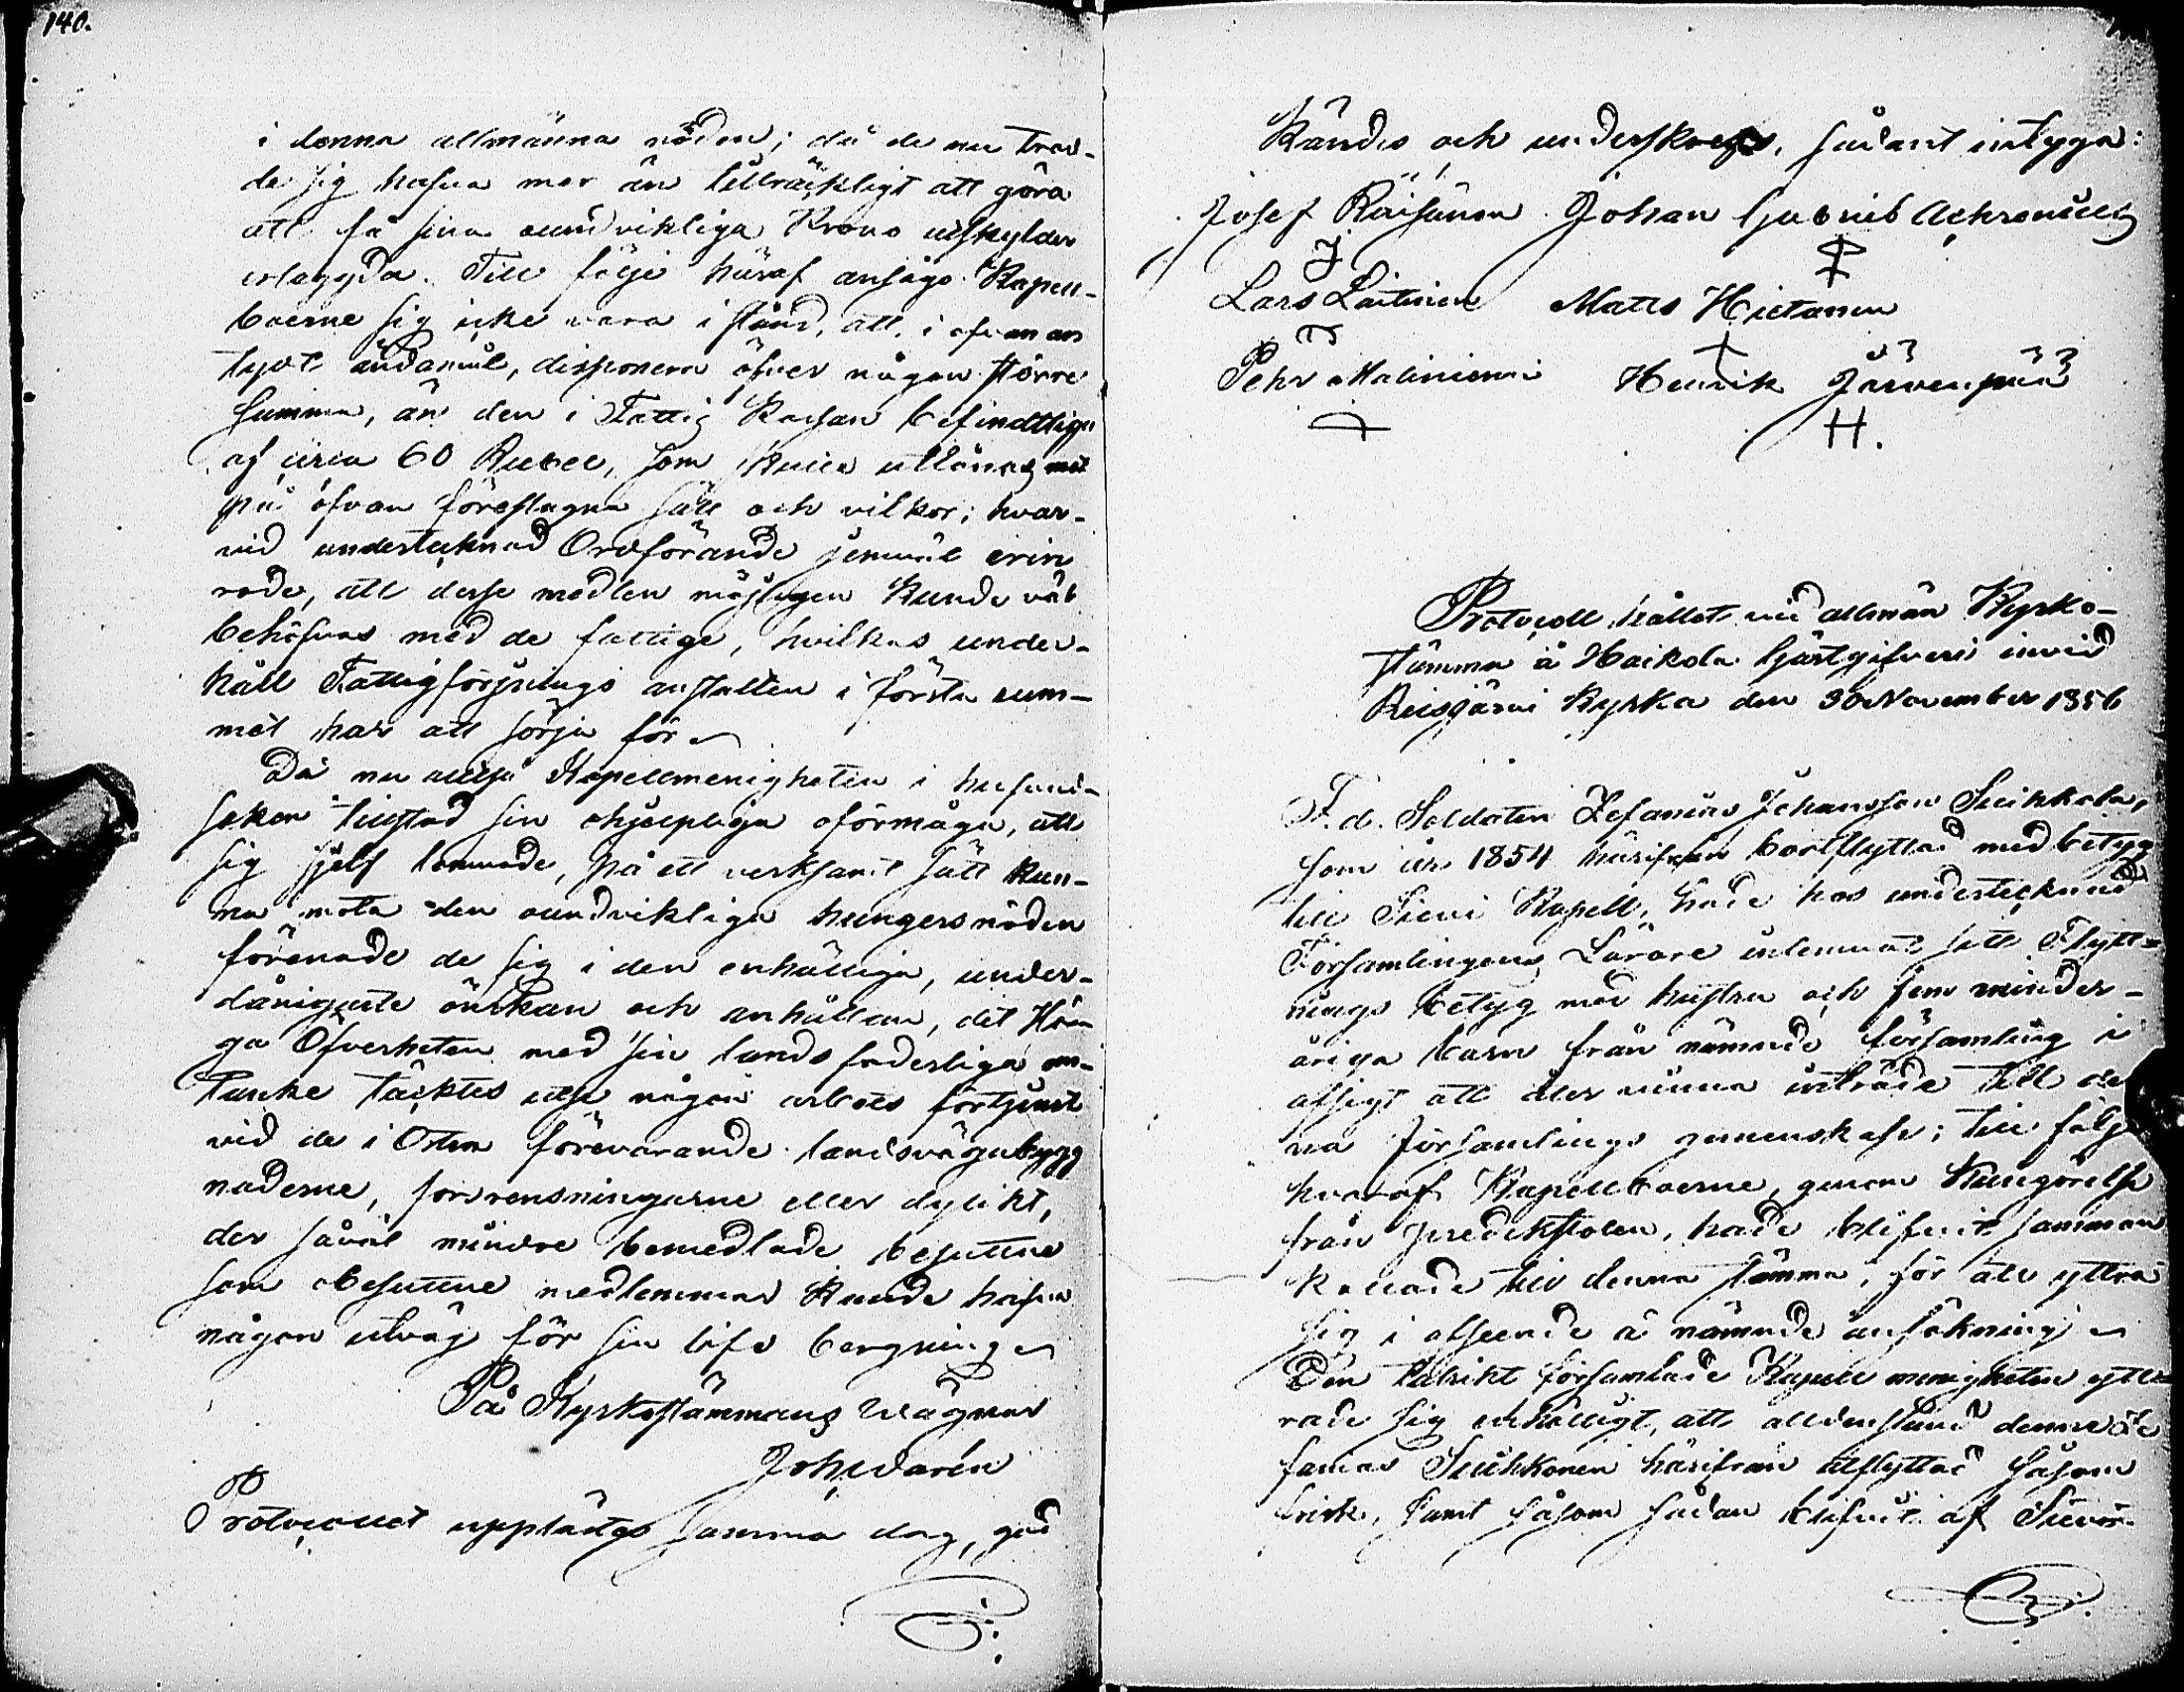 140.
i denna allmänna nöden; då de nu tro-
de sig hafva mer än tillräckligt att göra
att få sina oundvikliga Krono utskylder
erlagda. Till följe häraf ansågo Kapell-
boerne sig icke vara i stånd, att i ofvan an
tydt ändamål, disponera öfver någon större
Summa, än den i Fattig Kassan befindtliga
af circa 60 Rubel, som skulle utlånas
på ofvan föreslagna sätt och vilkor; hvar-
vid undertecknad Ordförande jemväl erin
rade, att desse medlen möjligen kunde väl
behöfvas med de fattige, hvilkas under-
håll Fattigförsörjnings anstalten i första rum-
met har att sörja för.
Då nu alltså Kapellmenigheten i hufvud-
saken tillstad sin ohjelpliga oförmåga, att
sig sjelf lemnade, på ett verksamt sätt kun-
na möta den oundvikliga hungersnöden
förenade de sig i den enhälliga, under-
dånigaste önskan och anhållan, det Hö-
ga Öfverheten med sin landsfaderliga om-
tanke täcktes utse någon arbets förtjenst
vid de i Orten förevarande landsvägabygg
naderne, forsrensningarne eller dylikt,
der såväl mindre bemedlade besuttne
som obesuttne medlemmar kunde hafva
någon utväg för sin lifs bergning
På Kyrkostämmans wägnar
Joh. Warén
Protocollet upplästes samma dag, god
Kändes och underskrefs, sådant intyga:
Josef Räisänen Johan Gabriel Achrenius
J
Lars Laitinen Matts Hietanen
Pehr Maliniemi Henrik Järvenpää
H.
Protocoll hållet vid allmän Kyrko-
stämma å Haikola Gästgifveri invid
Reisjärvi Kyrka den 30 November 1856
F.d. Soldaten Zefanias Johansson Suihkola,
som år 1854 härifrån bortflyttad med betyg
till Sievi Kapell, hade hos undertecknad
Församlingens Lärare inlemnat sitt Flytt-
nings betyg med hustru och fem minder-
åriga barn från nämnde församling i
afsigt att åter vinna inträde till den
na församlings gemenskap; till följe
hvaraf Kapellboerne, genom Kungörelse
från predikstolen, hade blifvit samman
kallade till denna stämma, för att yttra
sig i afseende å nämnde ansökning
Den talrikt församlade Kapell menigheten ytt
rade sig enhälligt, att alldenstund denne Ze
fanias Suihkonen härifrån utflyttad såsom
frisk, samt såsom sådan blifvit af Sievi